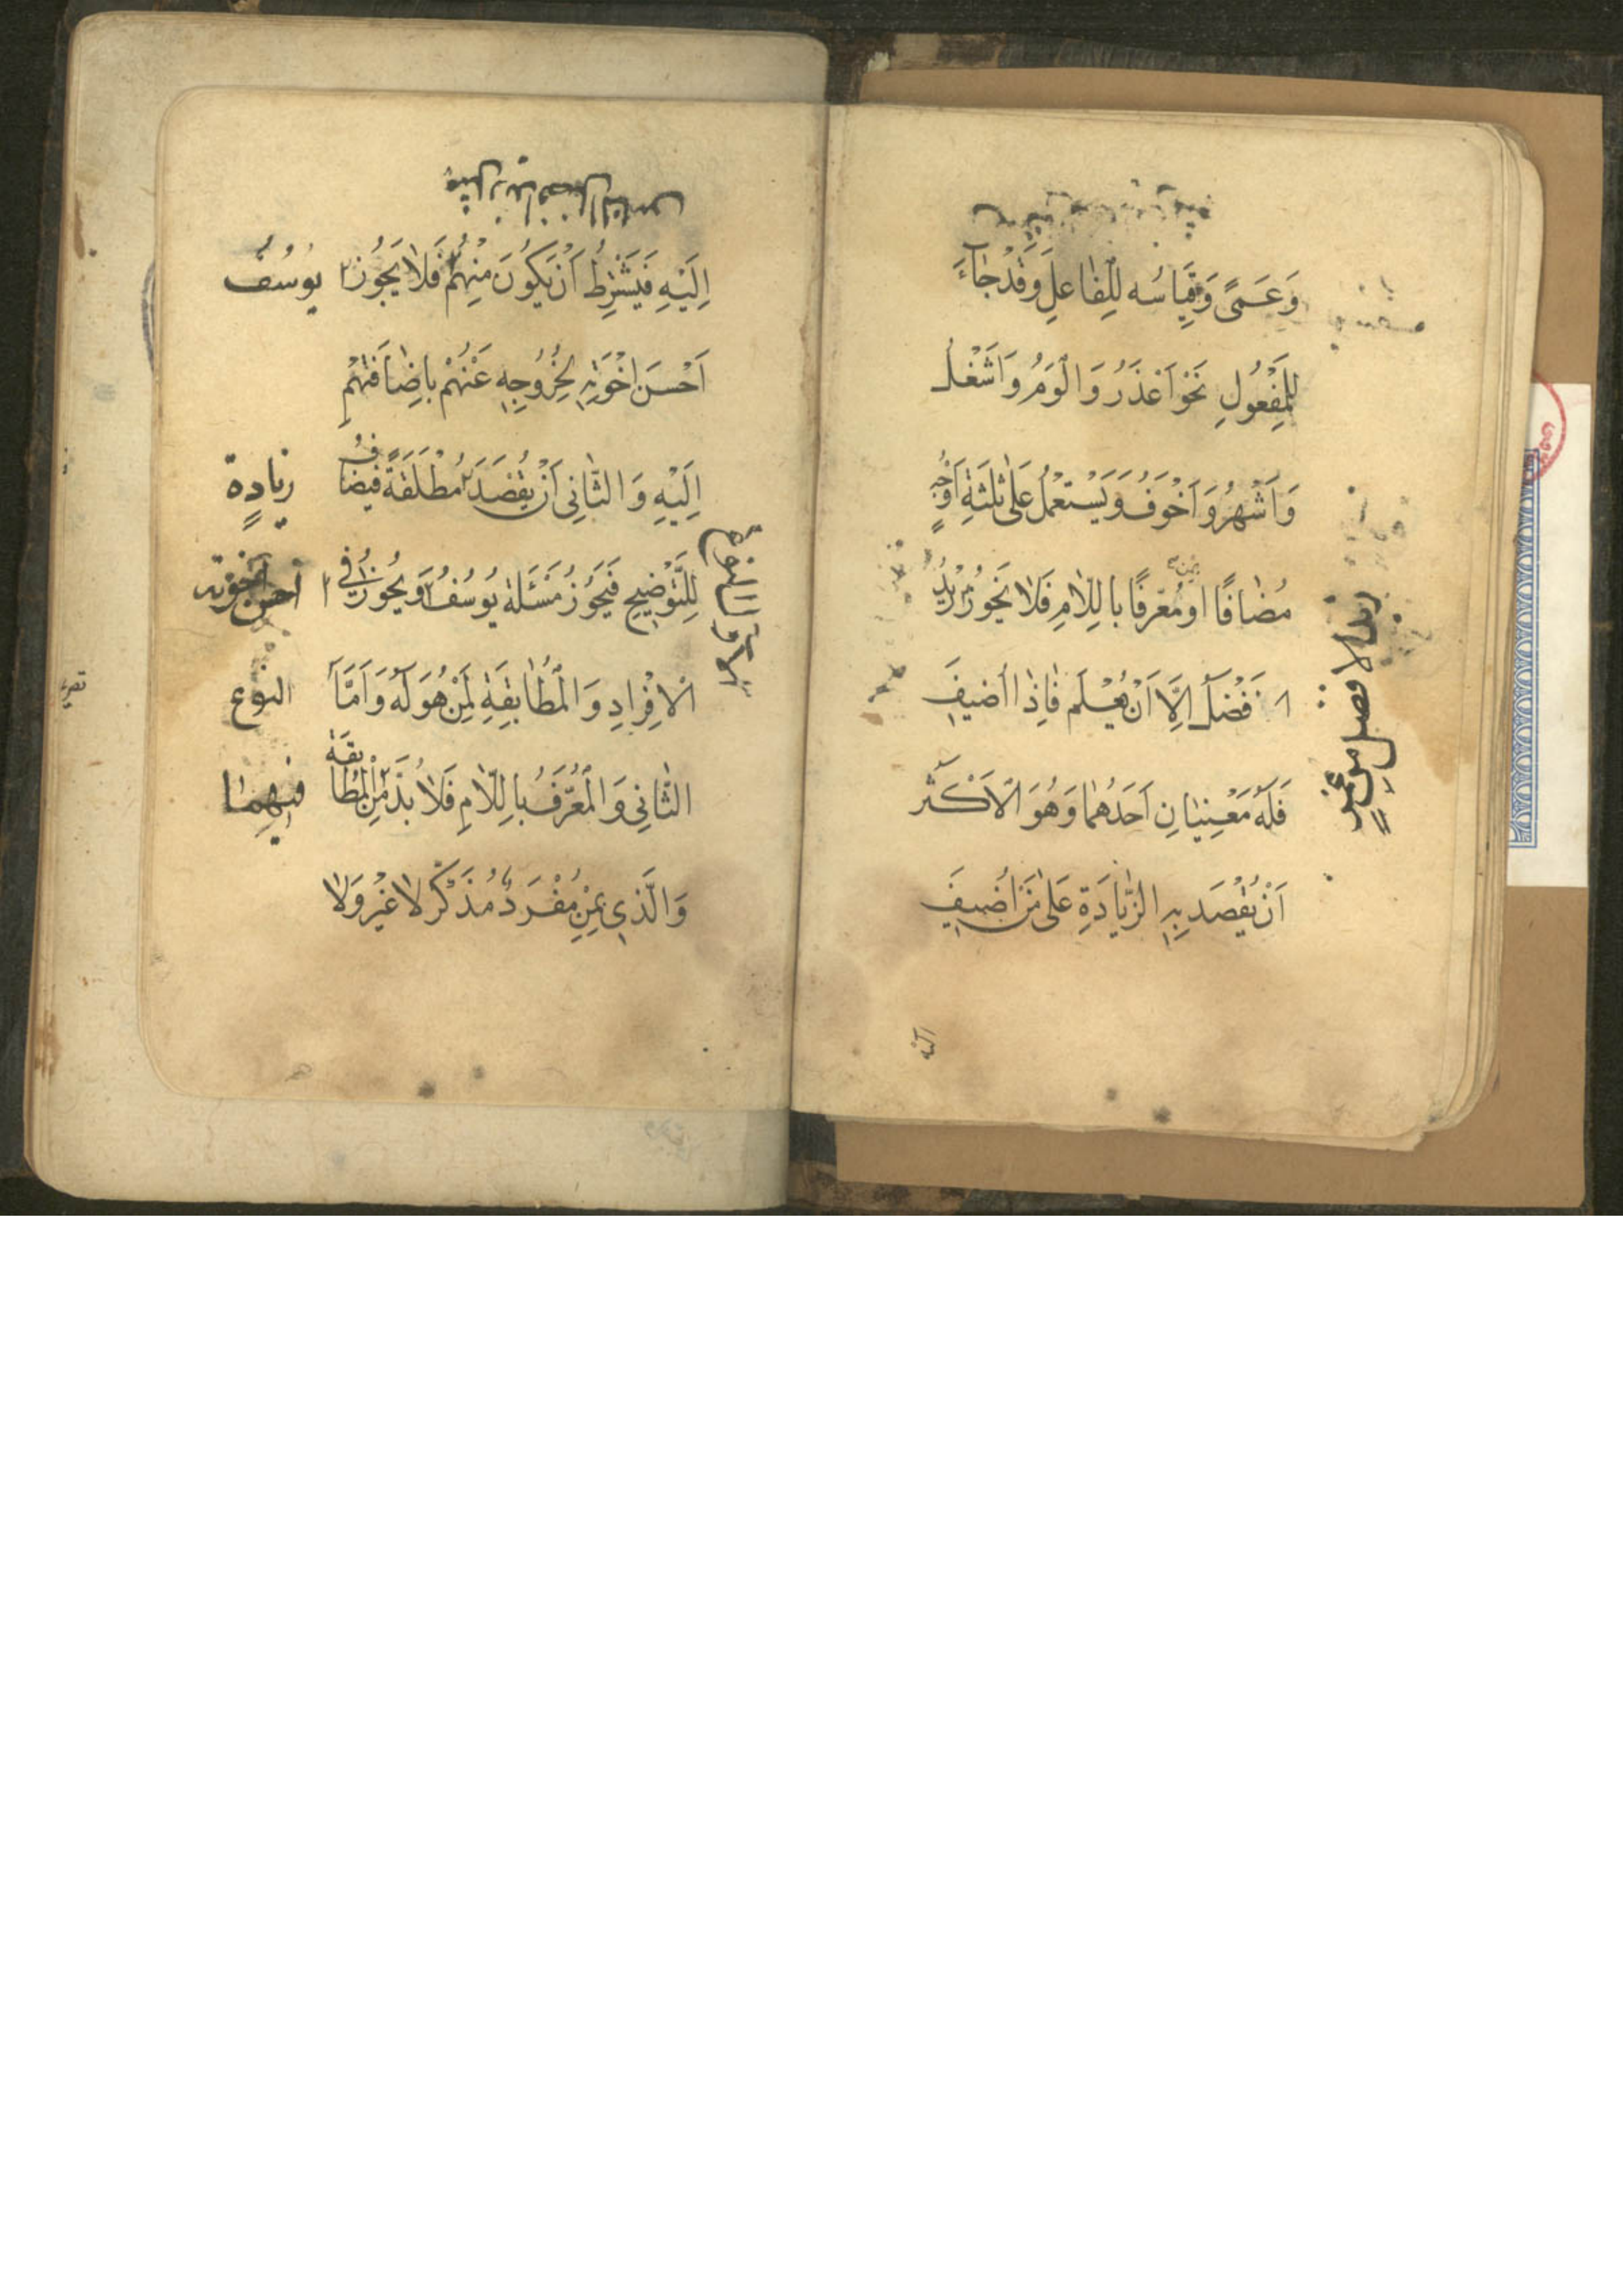 وَعَمًى وَقِيَاسُه لِلفَاعلِ وَقَدْ جَاءَ
لِلْمَفْعُولِ نَحْوَ اَعْذَرُ وَ اَلْوَمُ وَ اَشْغَلُ
وَاَشْهَرُ وَ اَخْوَفُ وَيَسْتَعْمَلُ عَلَى ثَلثَةِ اَوْجُهٍ
مُضَافًا او مُعَرفًا بِاللَّامِ فَلا يَجُوزُ زَيْدٌ
بمن
ا فَضَلُ اِلَّا اَنْ يُعْلَمَ فَاِذَا اُضيفَ
فَلَهُ مَعْنِيَانِ اَحَدُهُمَا وَهُوَ الْاَكْثَر
اَنْ يُقْصَدَ بِهِ الزِّيَادَةِ عَلَى مَنْ اُضِيفَ
اليه
اِلَيْهِ فَيَشْتَرِطُ اَنْ يَكُونَ مِنْهُمْ فَلَا يَجُوزُ يُوسُفُ
اَحْسَنَ اِخْوَتِهِ لِخُرُوجِهِ عَنْهُمْ بِاِضَافَتِهِمْ
اِلَيْهِ وَالثَّانِى اَنْ يُقْصَدَ مُطْلَقَةً فَيُضَافُ
زيادةٍ
لِلتَّوْضِيحِ فَيَجُوزُ مَسْئَلَةُ يُوسُفُ وَيَجُوزُ فِى
احسن اخوته
الْاِفْرَادِ وَ الْمُطَابَقَةِ لِمَنْ هُوَ لَهُ وَ اَمَّا
النوع
الثَّانِى وَ الْمُعَرَّفُ بِاللَّامِ فَلَا بُدَّ مِنَ الْمُطَابَقَةِ
فيهما
وَالَّذِى بِمِنْ مُفْرَدٌ مُذَكَّر لا غَيْرُ وَلا